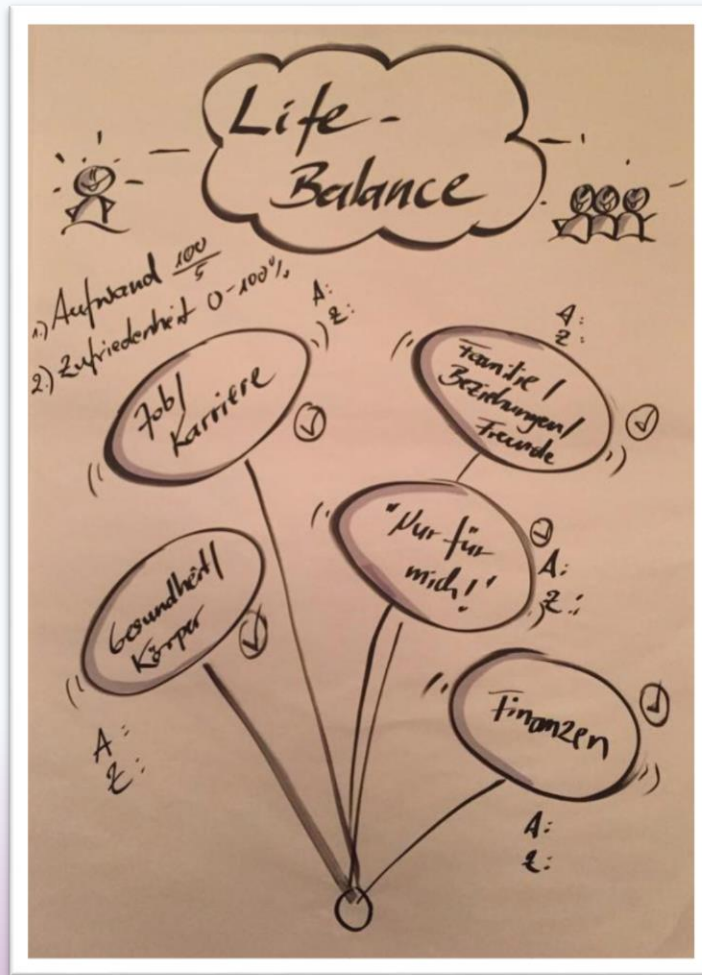 Life-
Balance
1.) Aufwand 100/5
2.) Zufriedenheit 0-100%
A:
Z:
Job/
Karriere
A:
Z:
Familie/
Beziehungen/
Freunde
"Nur für
mich!"
A:
Z:
Gesundheit/
Körper
A:
Z:
Finanzen
A:
Z: